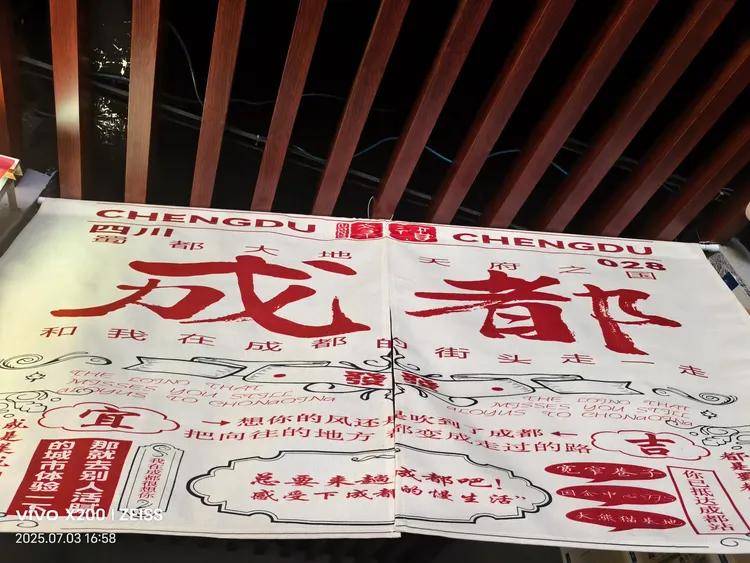 CHENGDU
CHENGDU
四川
028
蜀都大地
天府之国
成都
和我在成都的街头走一走
發發
THE LOING THAT
MUSSES YOU STILL
THE LOING THAT
MUSSES YOU STILL
宜
吉
→想你的风还是吹到了成都←
把向往的地方都变成走过的路
那就去别人活
的城市体验一
我在成都很想你
总要来趟成都吧!
感受下成都的慢生活"
宽窄巷子
大熊猫基地
你已抵达成都站
vivo X200 | ZEISS
2025.07.03 16:58